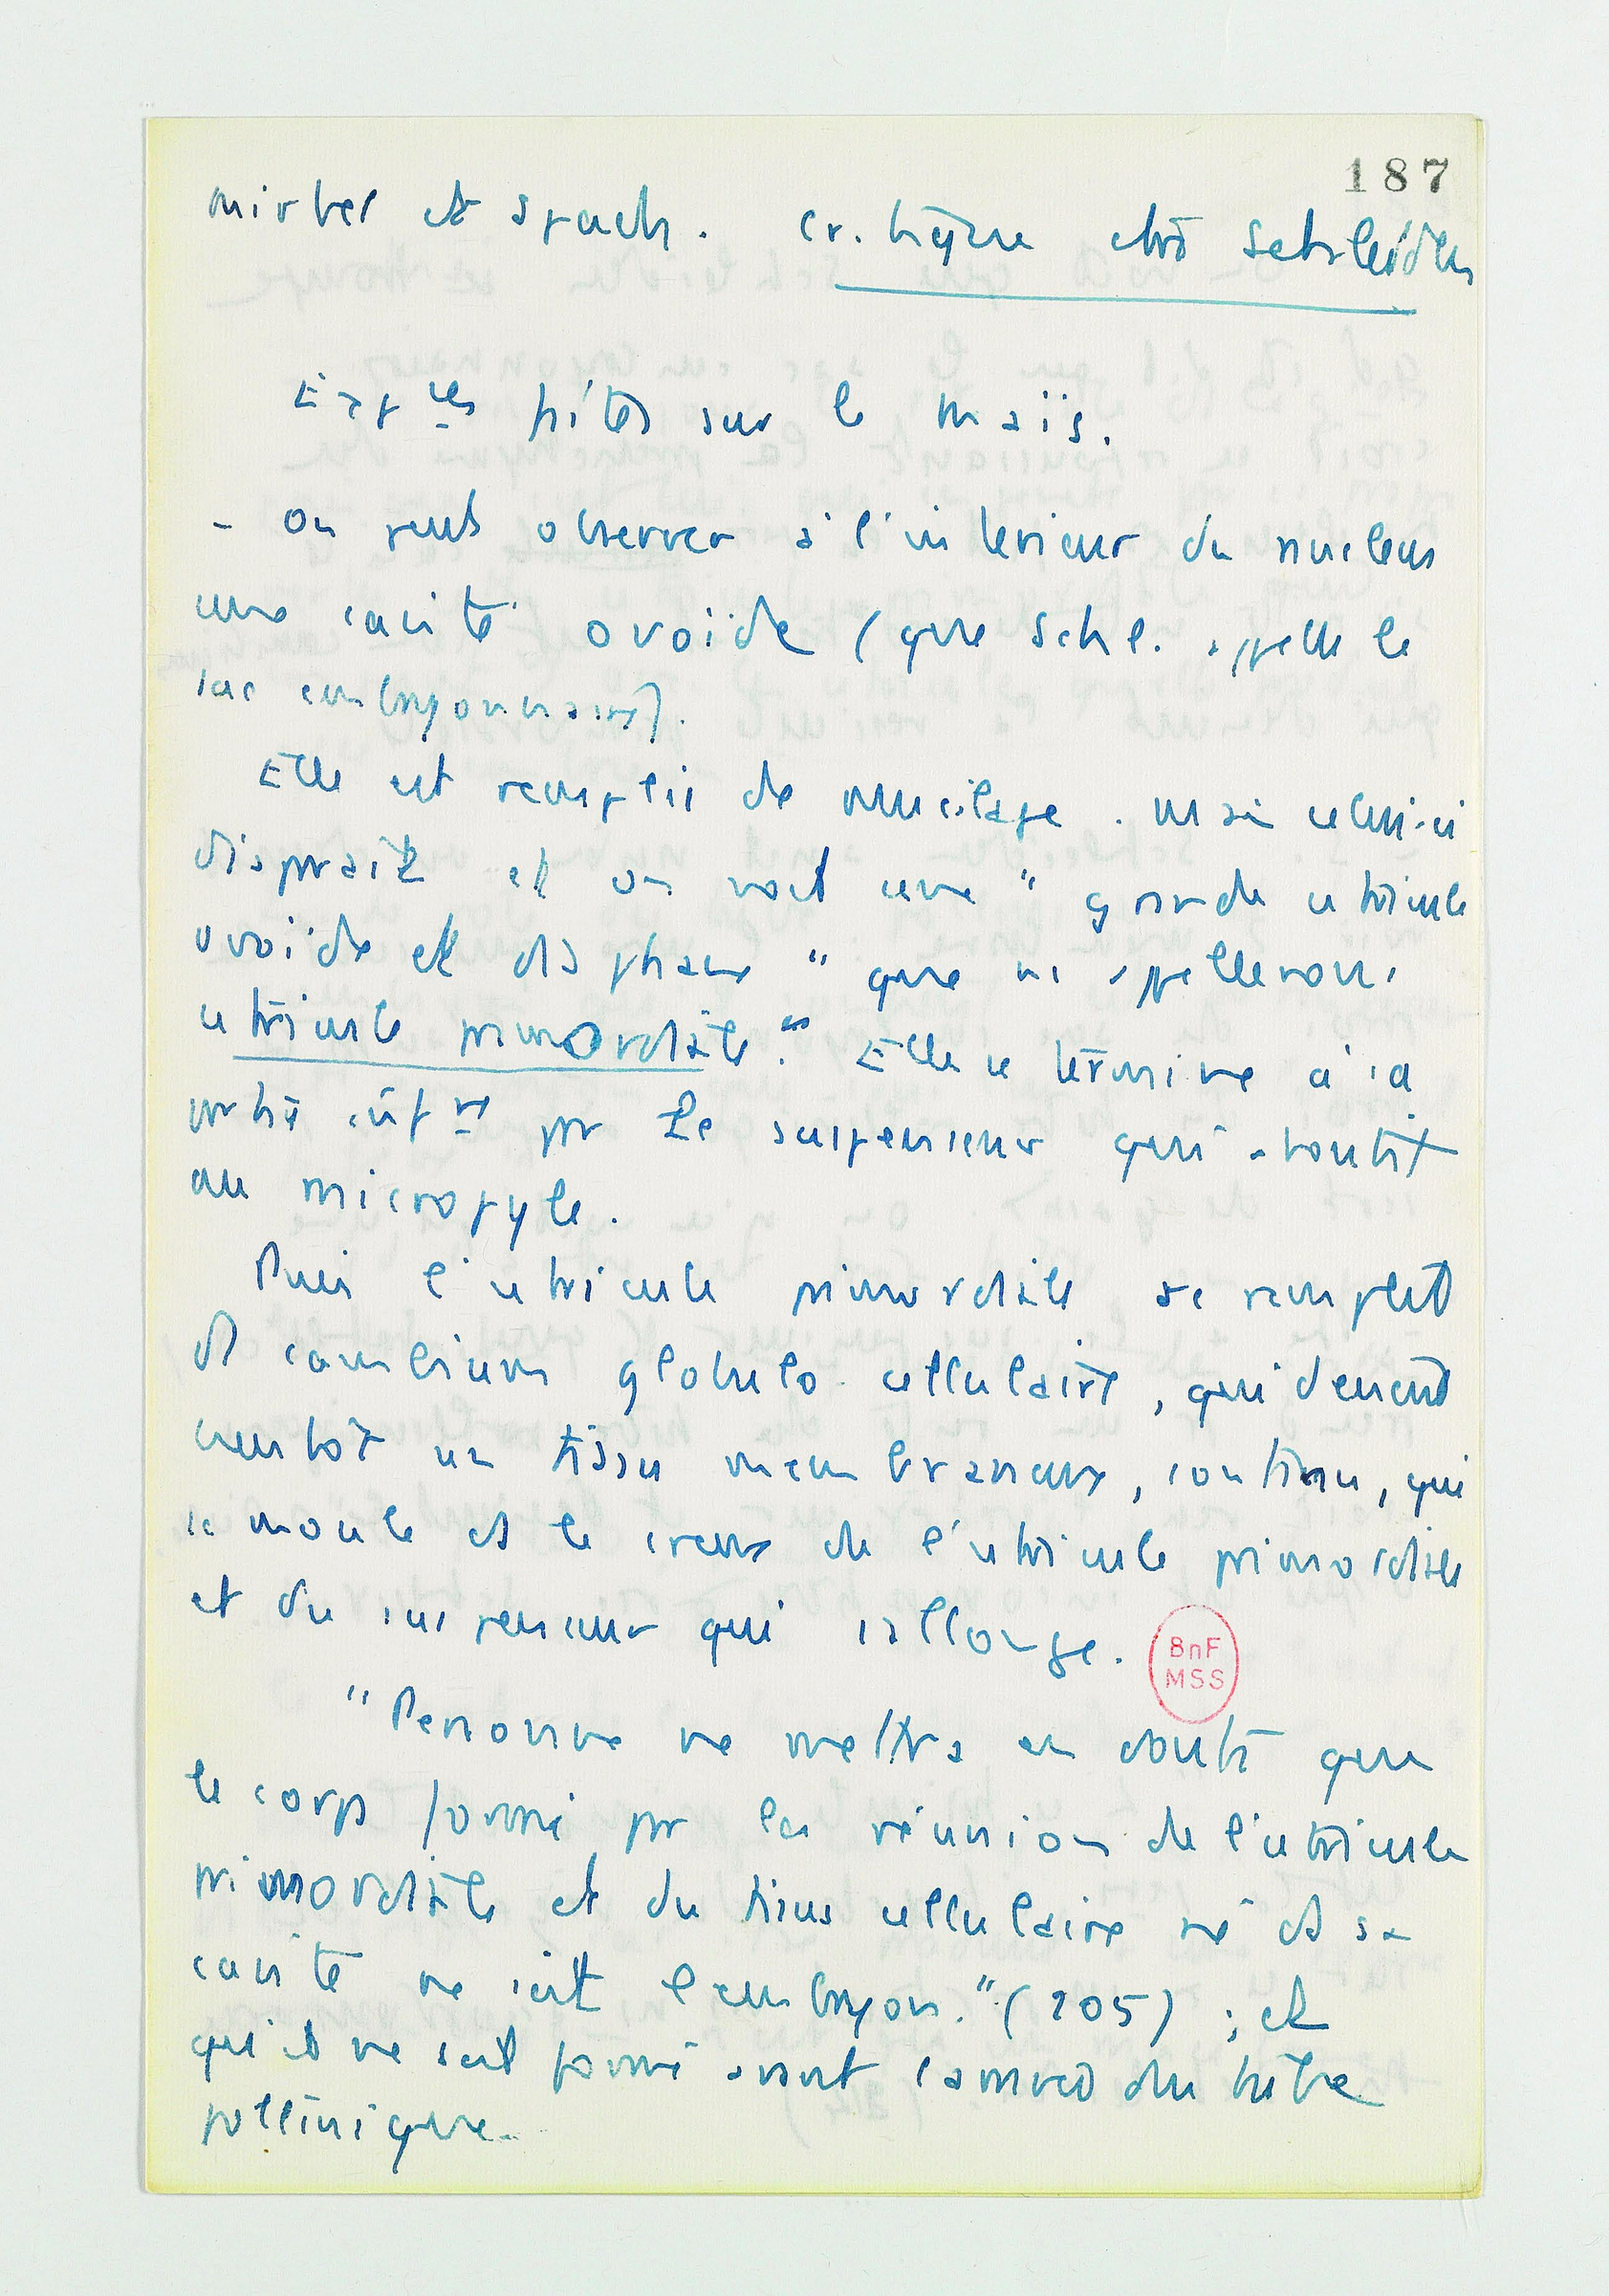 187
Mirbel et Spach. Critique de Schleiden
Exp^ces faites sur le maïs.
- On peut observer à l'intérieur du nucleus
une cavité ovoïde (que Schl. appelle le
sac embryonnaire).
Elle est remplie de mucilage. Mais celui-ci
disparaît et on voit une " grande utricule
ovoïde et diaphane " que ns appellerons
utricule primordiale." Elle se termine à sa
partie sup^re par le suspenseur qui aboutit
au micropyle.
Puis l'utricule primordiale se remplit
de cambium globulo-cellulaire, qui devient
bientôt un tissu membraneux, continu, qui
se moule ds le creux de l'utricule primordiale
et du suspenseur qui s'allonge.
BnF
MSS
"Personne ne mettra en doute que
le corps formé par la réunion de l'utricule
primordiale et du tissu cellulaire né ds sa
cavité ne soit l'embryon." (205) ; et
qu'il ne soit formé avant l'arrivée du tube
pollinique.